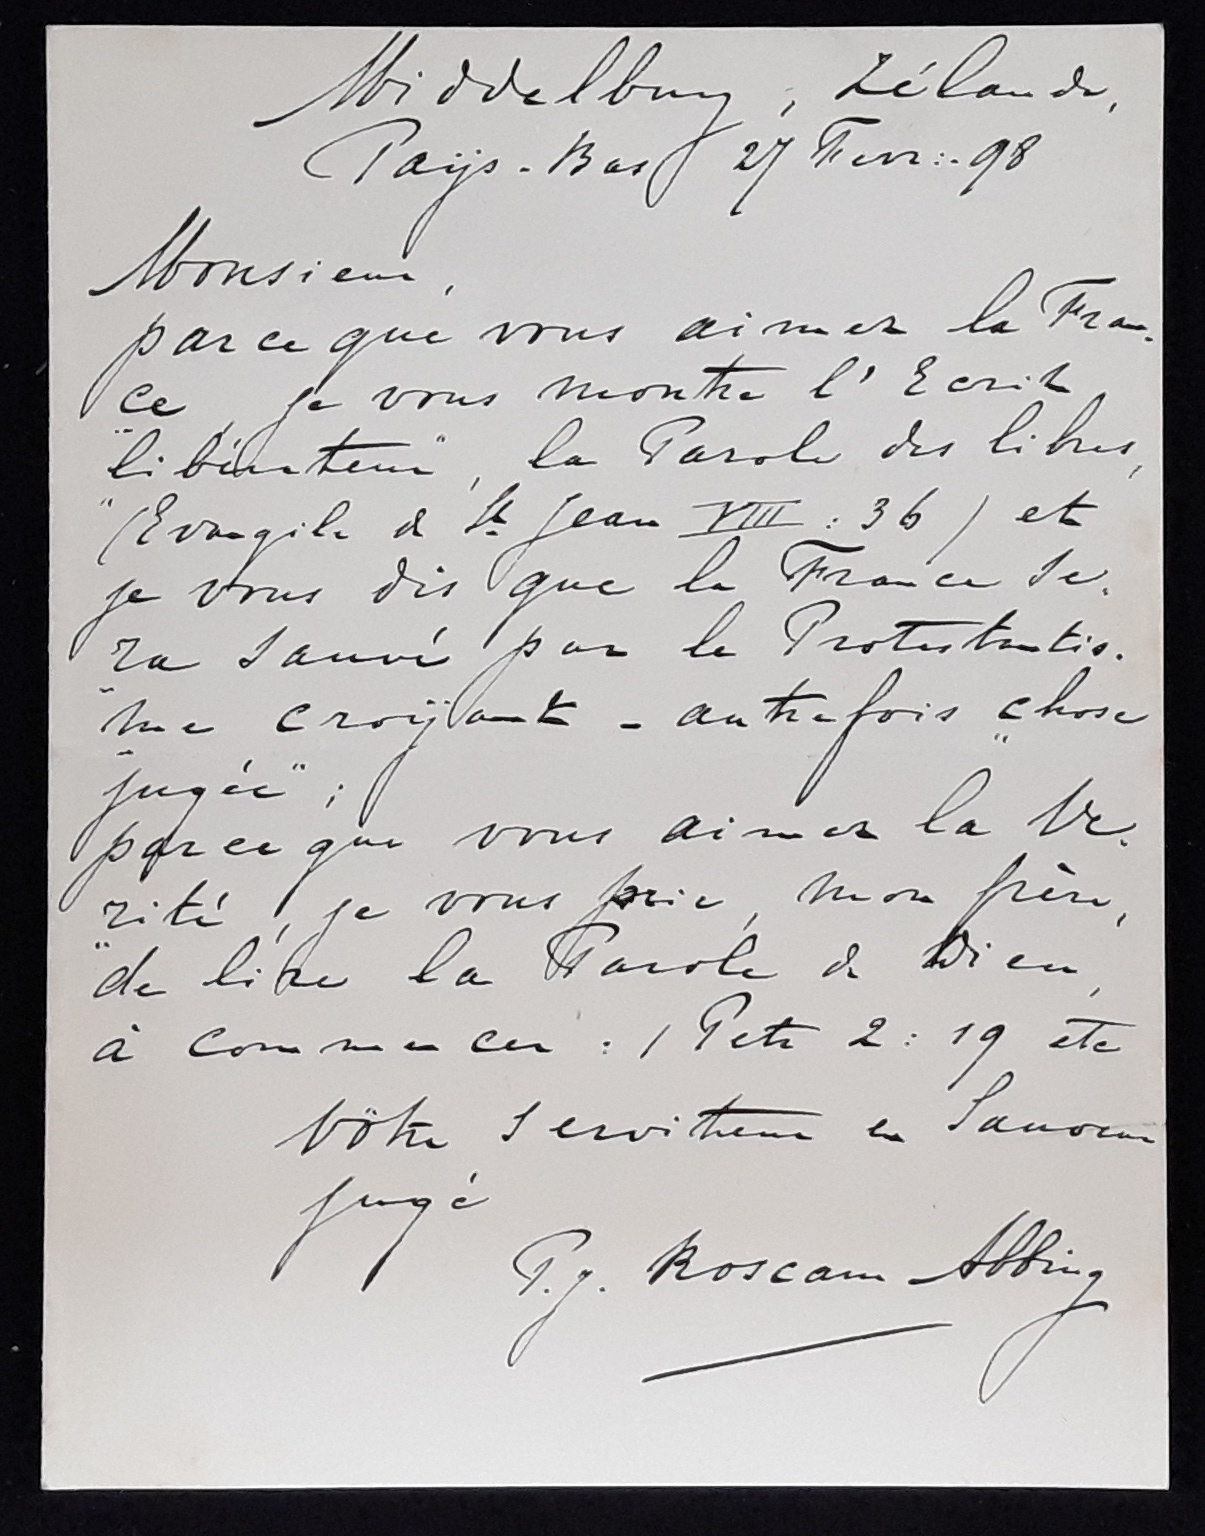 Middelburg, Zélande,
Paÿs-Bas 27 Fevr:. 98
Monsieur,
parceque vous aimez la Fran-
ce, je vous montre l'Ecrit
"libérateur", la Parole des libres,
"(Evangile de St Jean VIII : 36) et
je vous dis que la France se-
ra sauvé par le Protestantis-
"me croÿant - autrefois "chose
"jugée";
parceque vous aimez la Ve-
rité, je vous prie, mon frère,
"de lire la Parole de Dieu,
à commencer : 1 Petr 2 : 19 etc
vôtre serviteur en Sauveur
jugé
P.J. Roscam Abbing